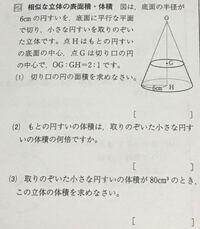 相似な立体の表面積・体積 図は、底面の半径が
6cmの円すいを、底面に平行な平面
で切り、小さな円すいを取りのぞい
た立体です。点Hはもとの円すい
の底面の中心、点Gは切り口の円
の中心で、OG:GH=2:1です。
(1) 切り口の円の面積を求めなさい。
O
G
6cm
H
[ ]
(2) もとの円すいの体積は、取りのぞいた小さな円す
いの体積の何倍ですか。
[ ]
(3) 取りのぞいた小さな円すいの体積が80cm³のとき、
この立体の体積を求めなさい。
[ ]